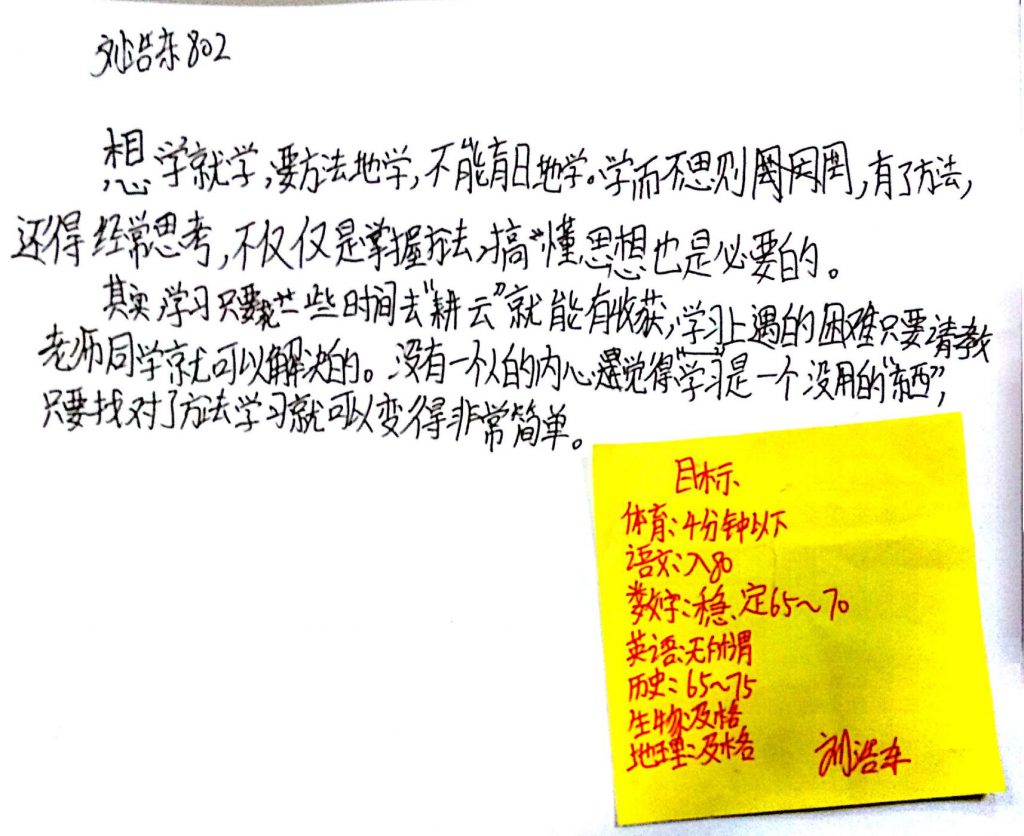 刘浩东802
想学就学,要方法地学,不能盲目地学。学而不思则罔,有了方法,
还得经常思考,不仅仅是掌握方法,搞懂思想也是必要的。
其实学习只要花一些时间去"耕云"就能有收获,学习上遇的困难只要请教
老师同学就可以解决的。没有一个人的内心觉得"学习"是一个没用的"东西",
只要找对了方法学习就可以变得非常简单。
目标
体育:4分钟以下
语文:入80
数学:稳定65~70
英语:无所谓
历史:65~75
生物:及格
地理:及格
刘浩东